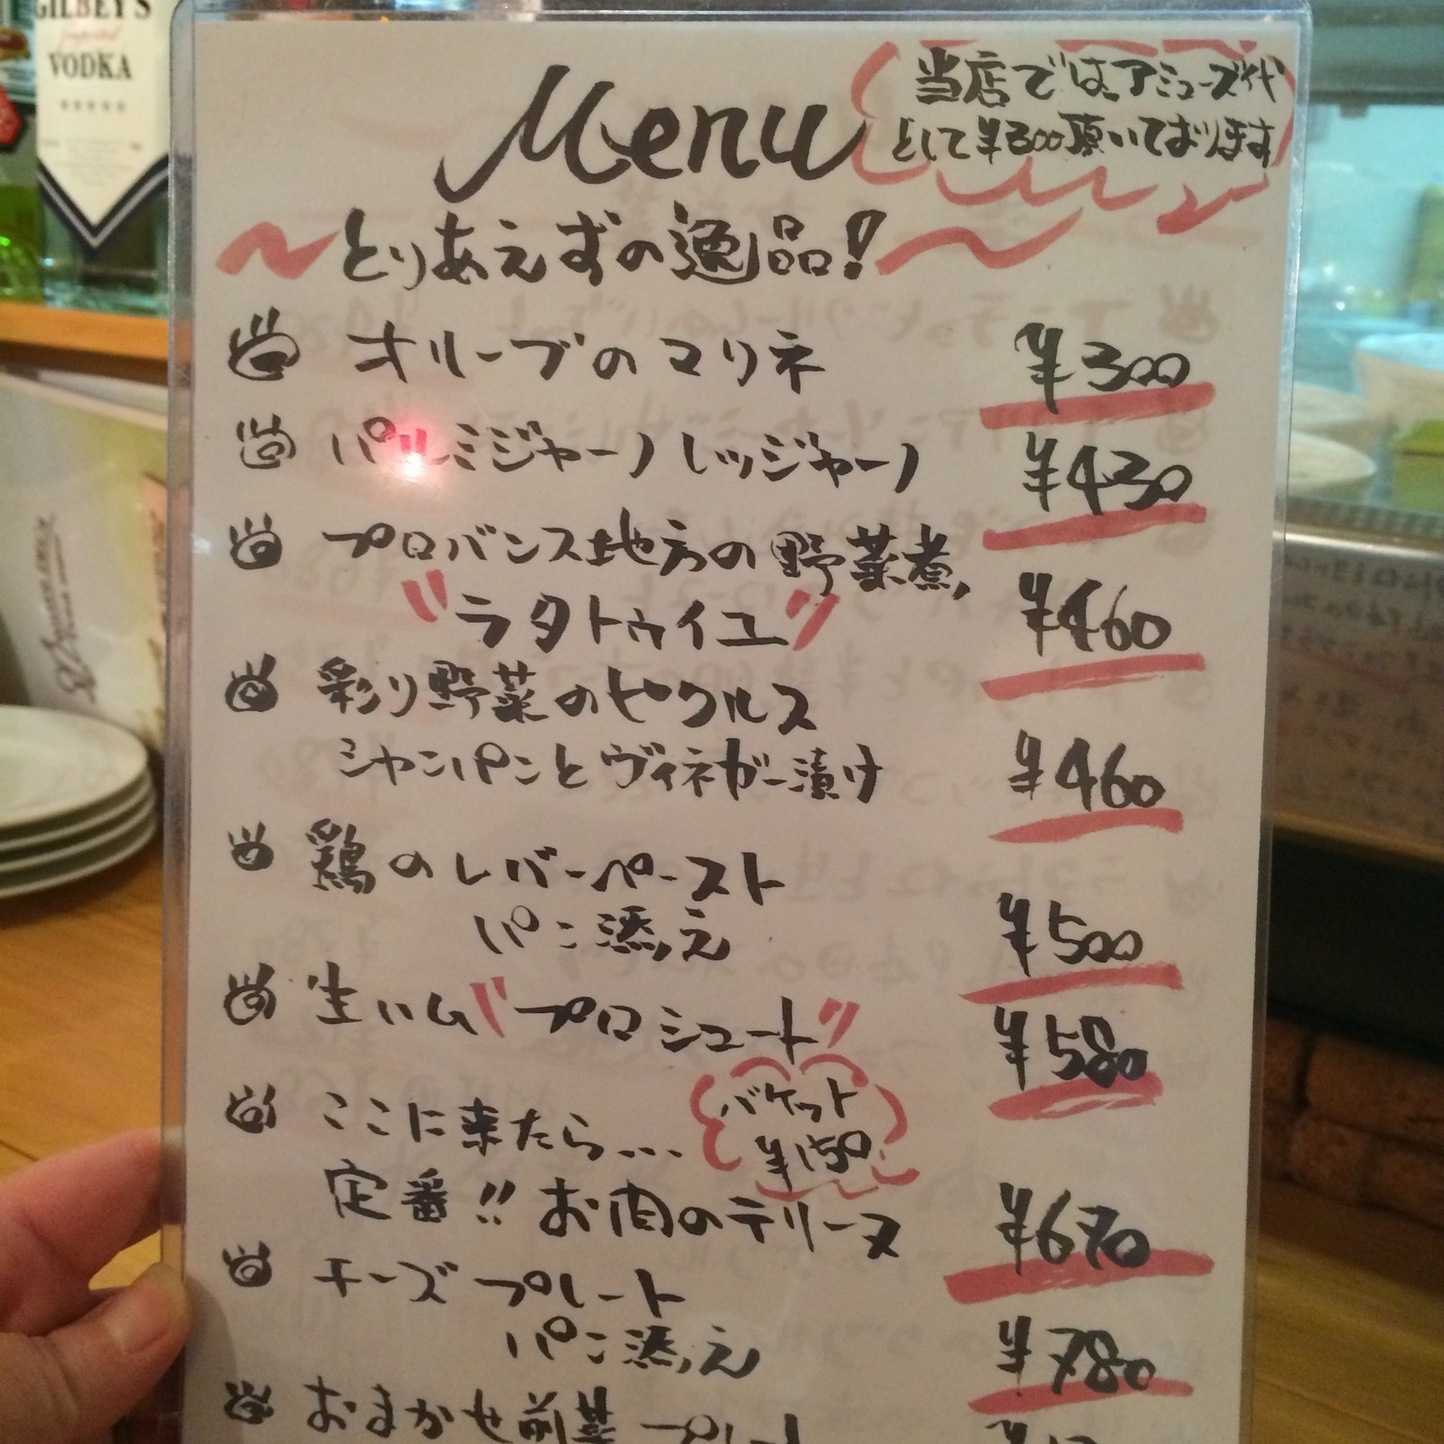 GILBEY'S
Imported
VODKA
Menu
当店ではアミューズ代
として¥300頂いております
〜とりあえずの逸品!〜
オリーブのマリネ ¥300
パルミジャーノレッジャーノ ¥430
プロバンス地方の野菜煮,
"ラタトゥイユ" ¥460
彩り野菜のピクルス
シャンパンとヴィネガー漬け ¥460
鶏のレバーペースト
パン添え ¥500
生ハム"プロシュート" ¥580
バケット
¥150
ここに来たら...
定番!!お肉のテリーヌ ¥670
チーズプレート
パン添え ¥780
おまかせ前菜プレート